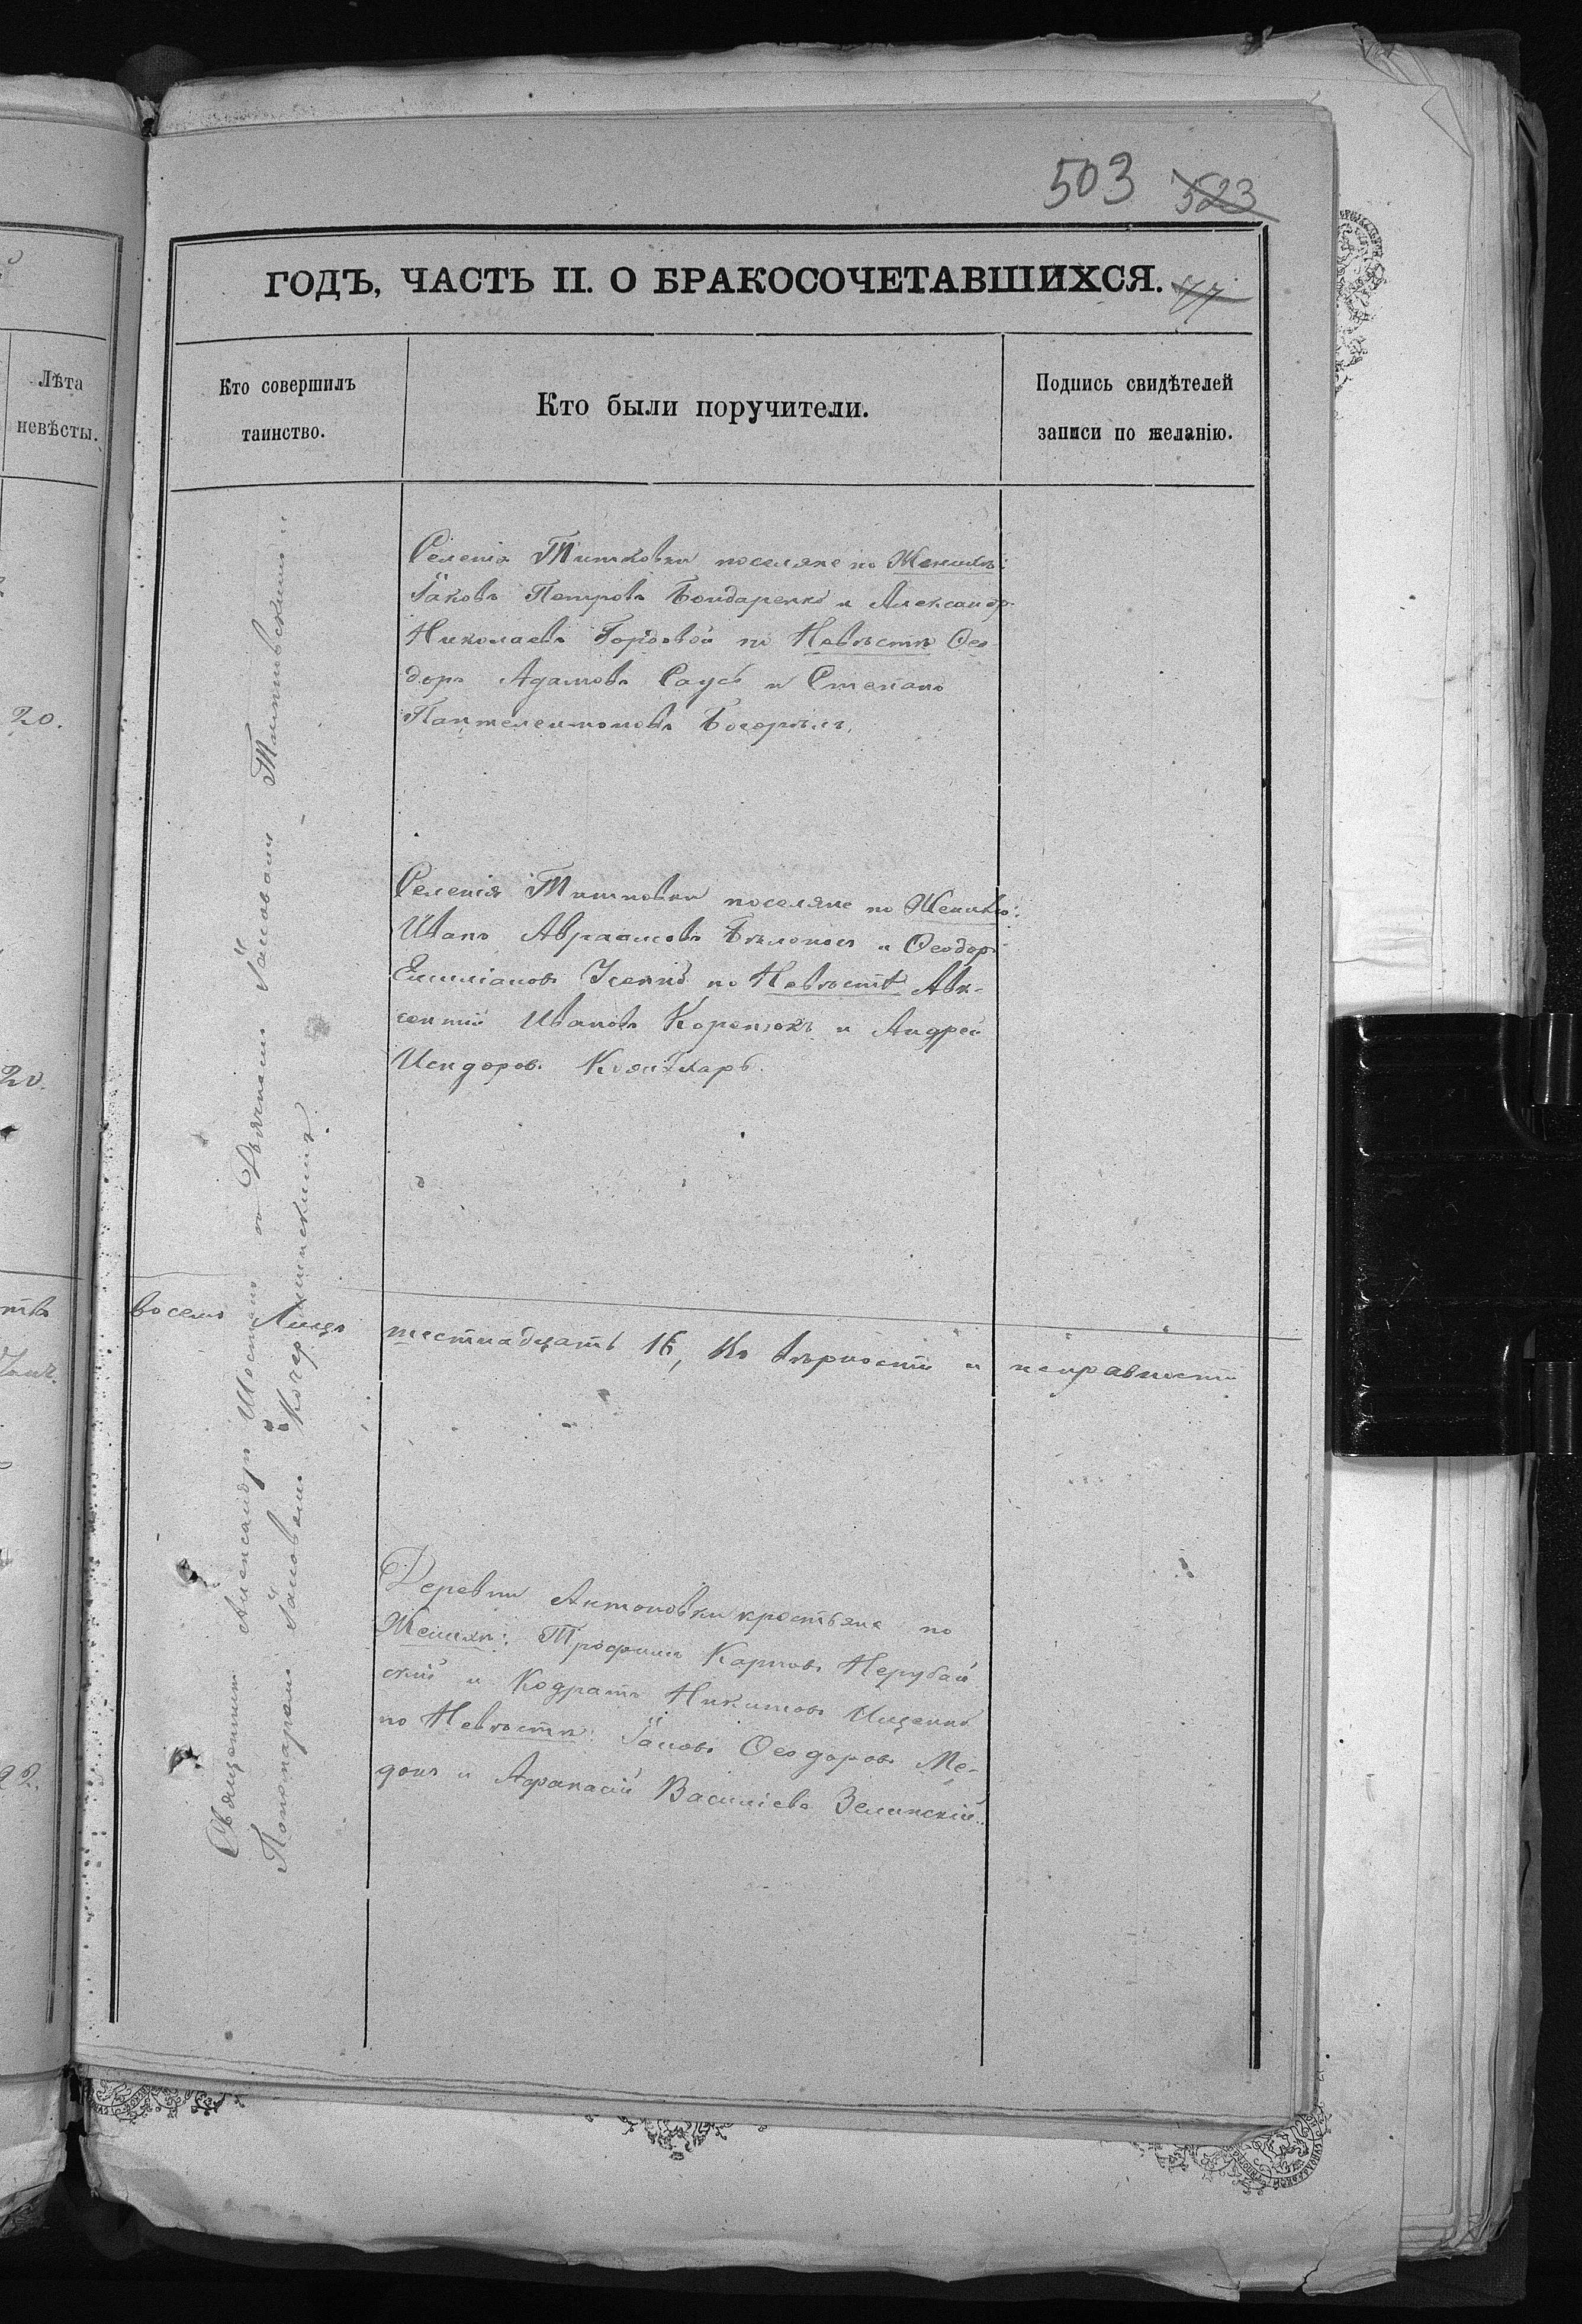 503 523
ГОДЪ, ЧАСТЬ II. О БРАКОСОЧЕТАВШИХСЯ. 47
Лѣта
невѣсты.
Кто совершилъ
таинство.
Кто были поручители.
Подпись свидѣтелей
записи по желанію.
20.
20.
22.
Священникъ Александръ съ Дьячкомъ Іаковомъ
Пономаремъ Іаковомъ
Селенія Тишковки поселяне по Женихѣ:
Іаковъ Петровъ Бондаренко и Александръ
Николаевъ Городовой по Невѣстѣ Ѳео-
доръ Адамовъ Саусь и Стефанъ
Пантелеимоновъ
Селенія Тишковки поселяне по Женихѣ:
Иванъ Авраамовъ Бѣлоконь и Ѳеодоръ
Емиліановъ Усенко по Невѣстѣ Авк-
сентій Ивановъ Коренюкъ и Андрей
Исидоровъ
восемь Лицъ шестнадцать 16, въ вѣрности и исправности
Деревни Антоновки крестьяне по
Женихѣ: Трофимъ Карповъ Нерубай
скій и Кодратъ Никитовъ Ищенко
по Невѣстѣ: Іаковъ Ѳеодоровъ Ме-
донъ и Афанасій Василіевъ Зелинскій.